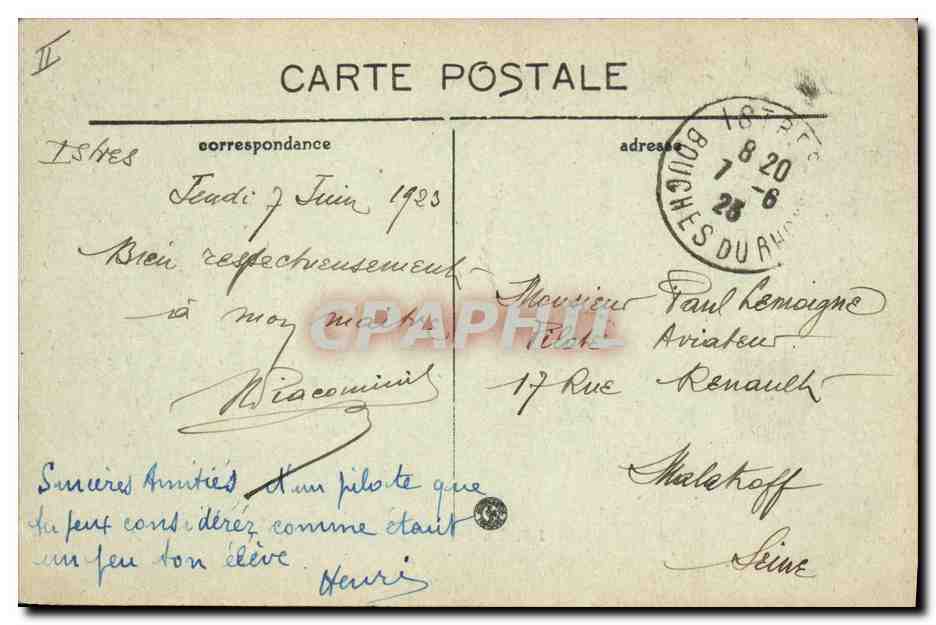 II
CARTE POSTALE
correspondance
adresse
Istres
Jeudi 7 Juin 1923
Bien respectueusement
à mon maître
Giacomini
Sincères Amitiés d'un pilote que
tu peux considérez comme étant
un peu ton élève
Henri
ISTRES
8 20
7 -6
23
BOUCHES DU RHONE
Monsieur Paul Lemoigne
Pilote Aviateur
17 Rue Renault
Malakoff
Seine
CPAPHIL